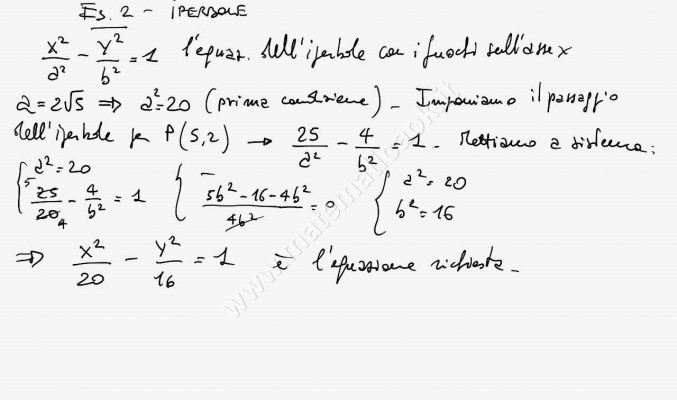 Es. 2 - IPERBOLE
x²/a² - y²/b² = 1 l'equaz. dell'iperbole con i fuochi sull'asse x
a = 2√5 ⇒ a² = 20 (prima condizione) - Imponiamo il passaggio
dell'iperbole per P(5,2) → 25/a² - 4/b² = 1 - Mettiamo a sistema:
{ a² = 20 ; 25/20 - 4/b² = 1 { - ; (5b² - 16 - 4b²)/4b² = 0 { a² = 20 ; b² = 16
⇒ x²/20 - y²/16 = 1 è l'equazione richiesta -
www.matematicaok.it